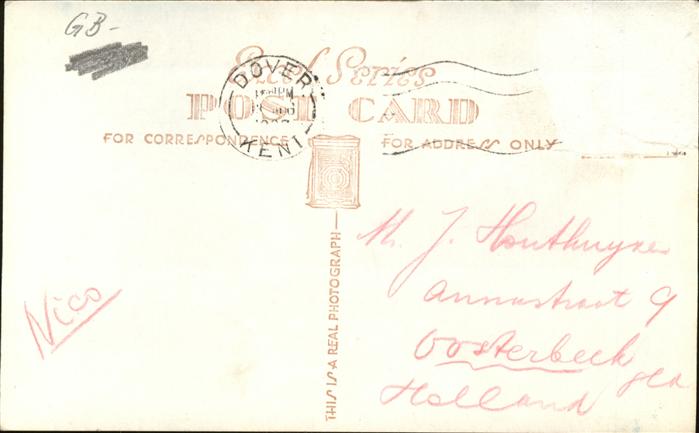 GB-
Real Series
POST CARD
FOR CORRESPONDENCE
FOR ADDRESS ONLY
DOVER
KENT
THIS IS A REAL PHOTOGRAPH
Nico
M. J.
Annastraat 9
Oosterbeek
Gld
Holland